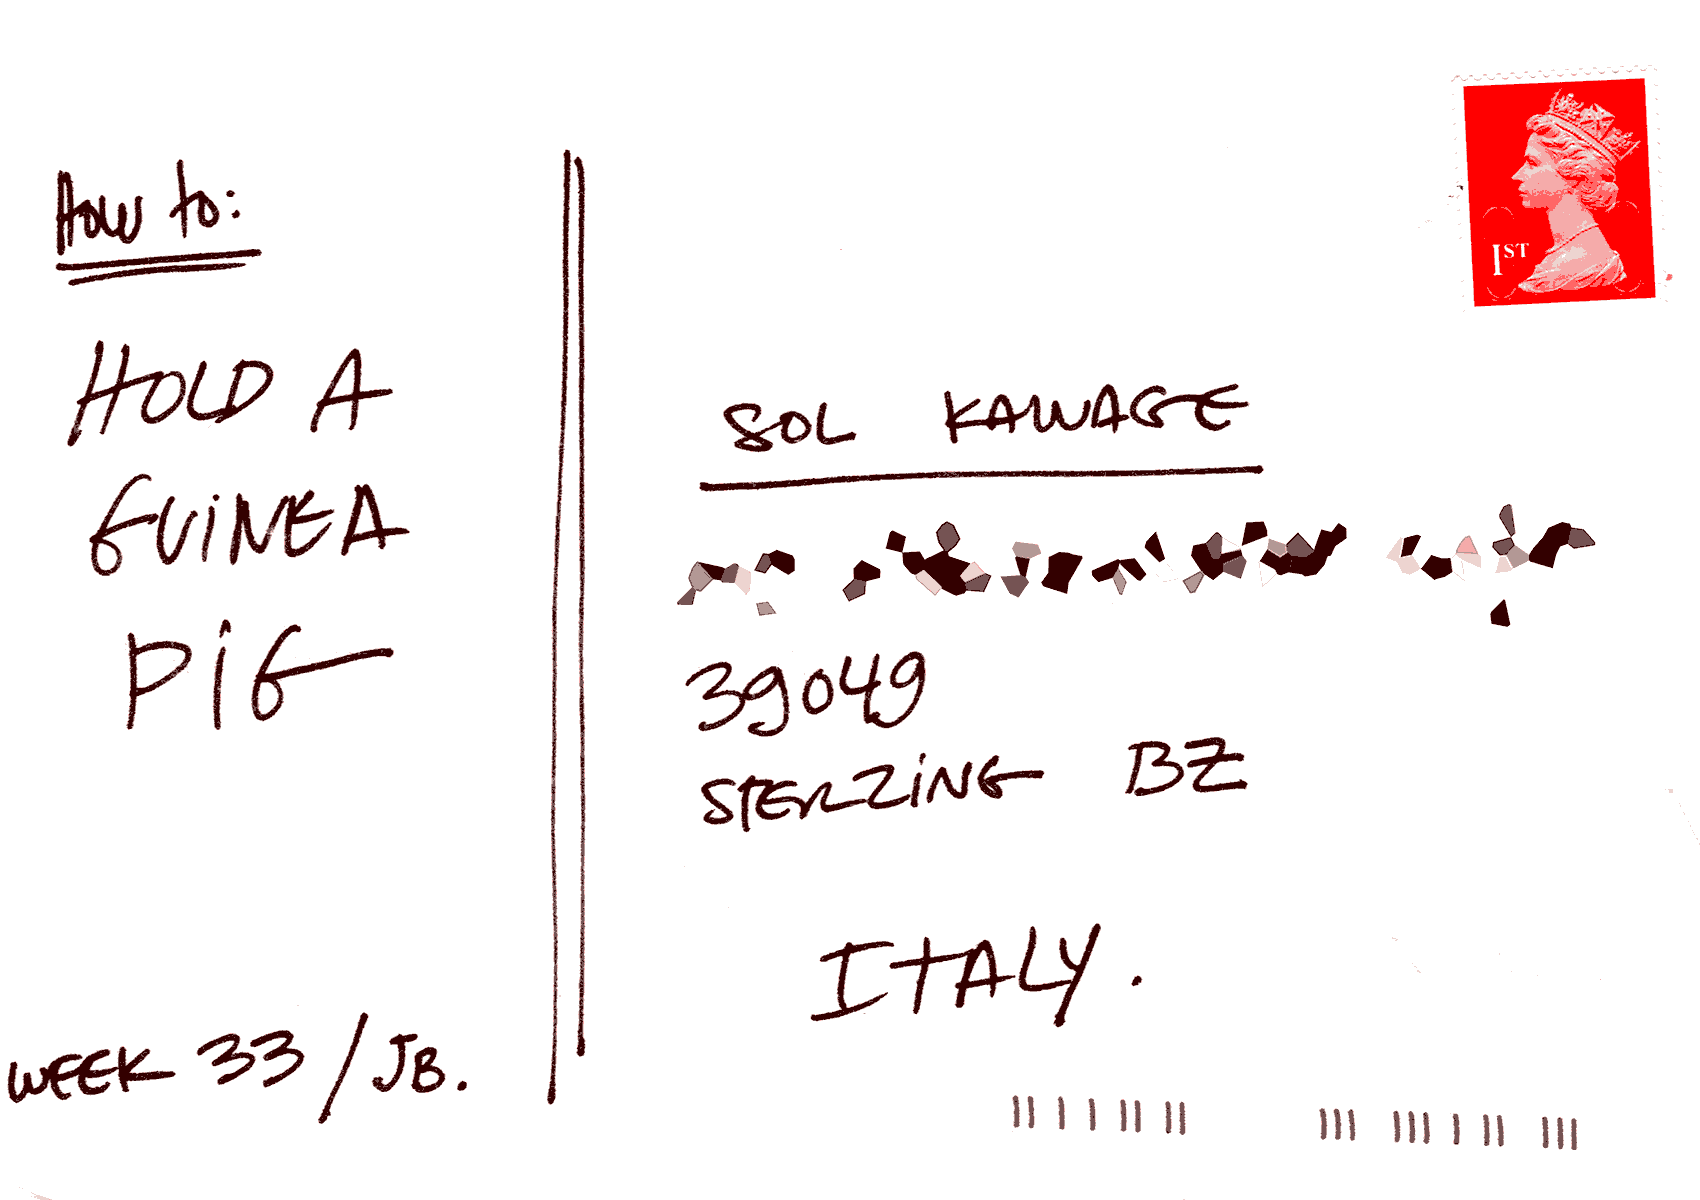 How to:
HOLD A
GUINEA
PIG
WEEK 33 / JB.
1ST
SOL KAWAGE
39049
STERZING BZ
ITALY.